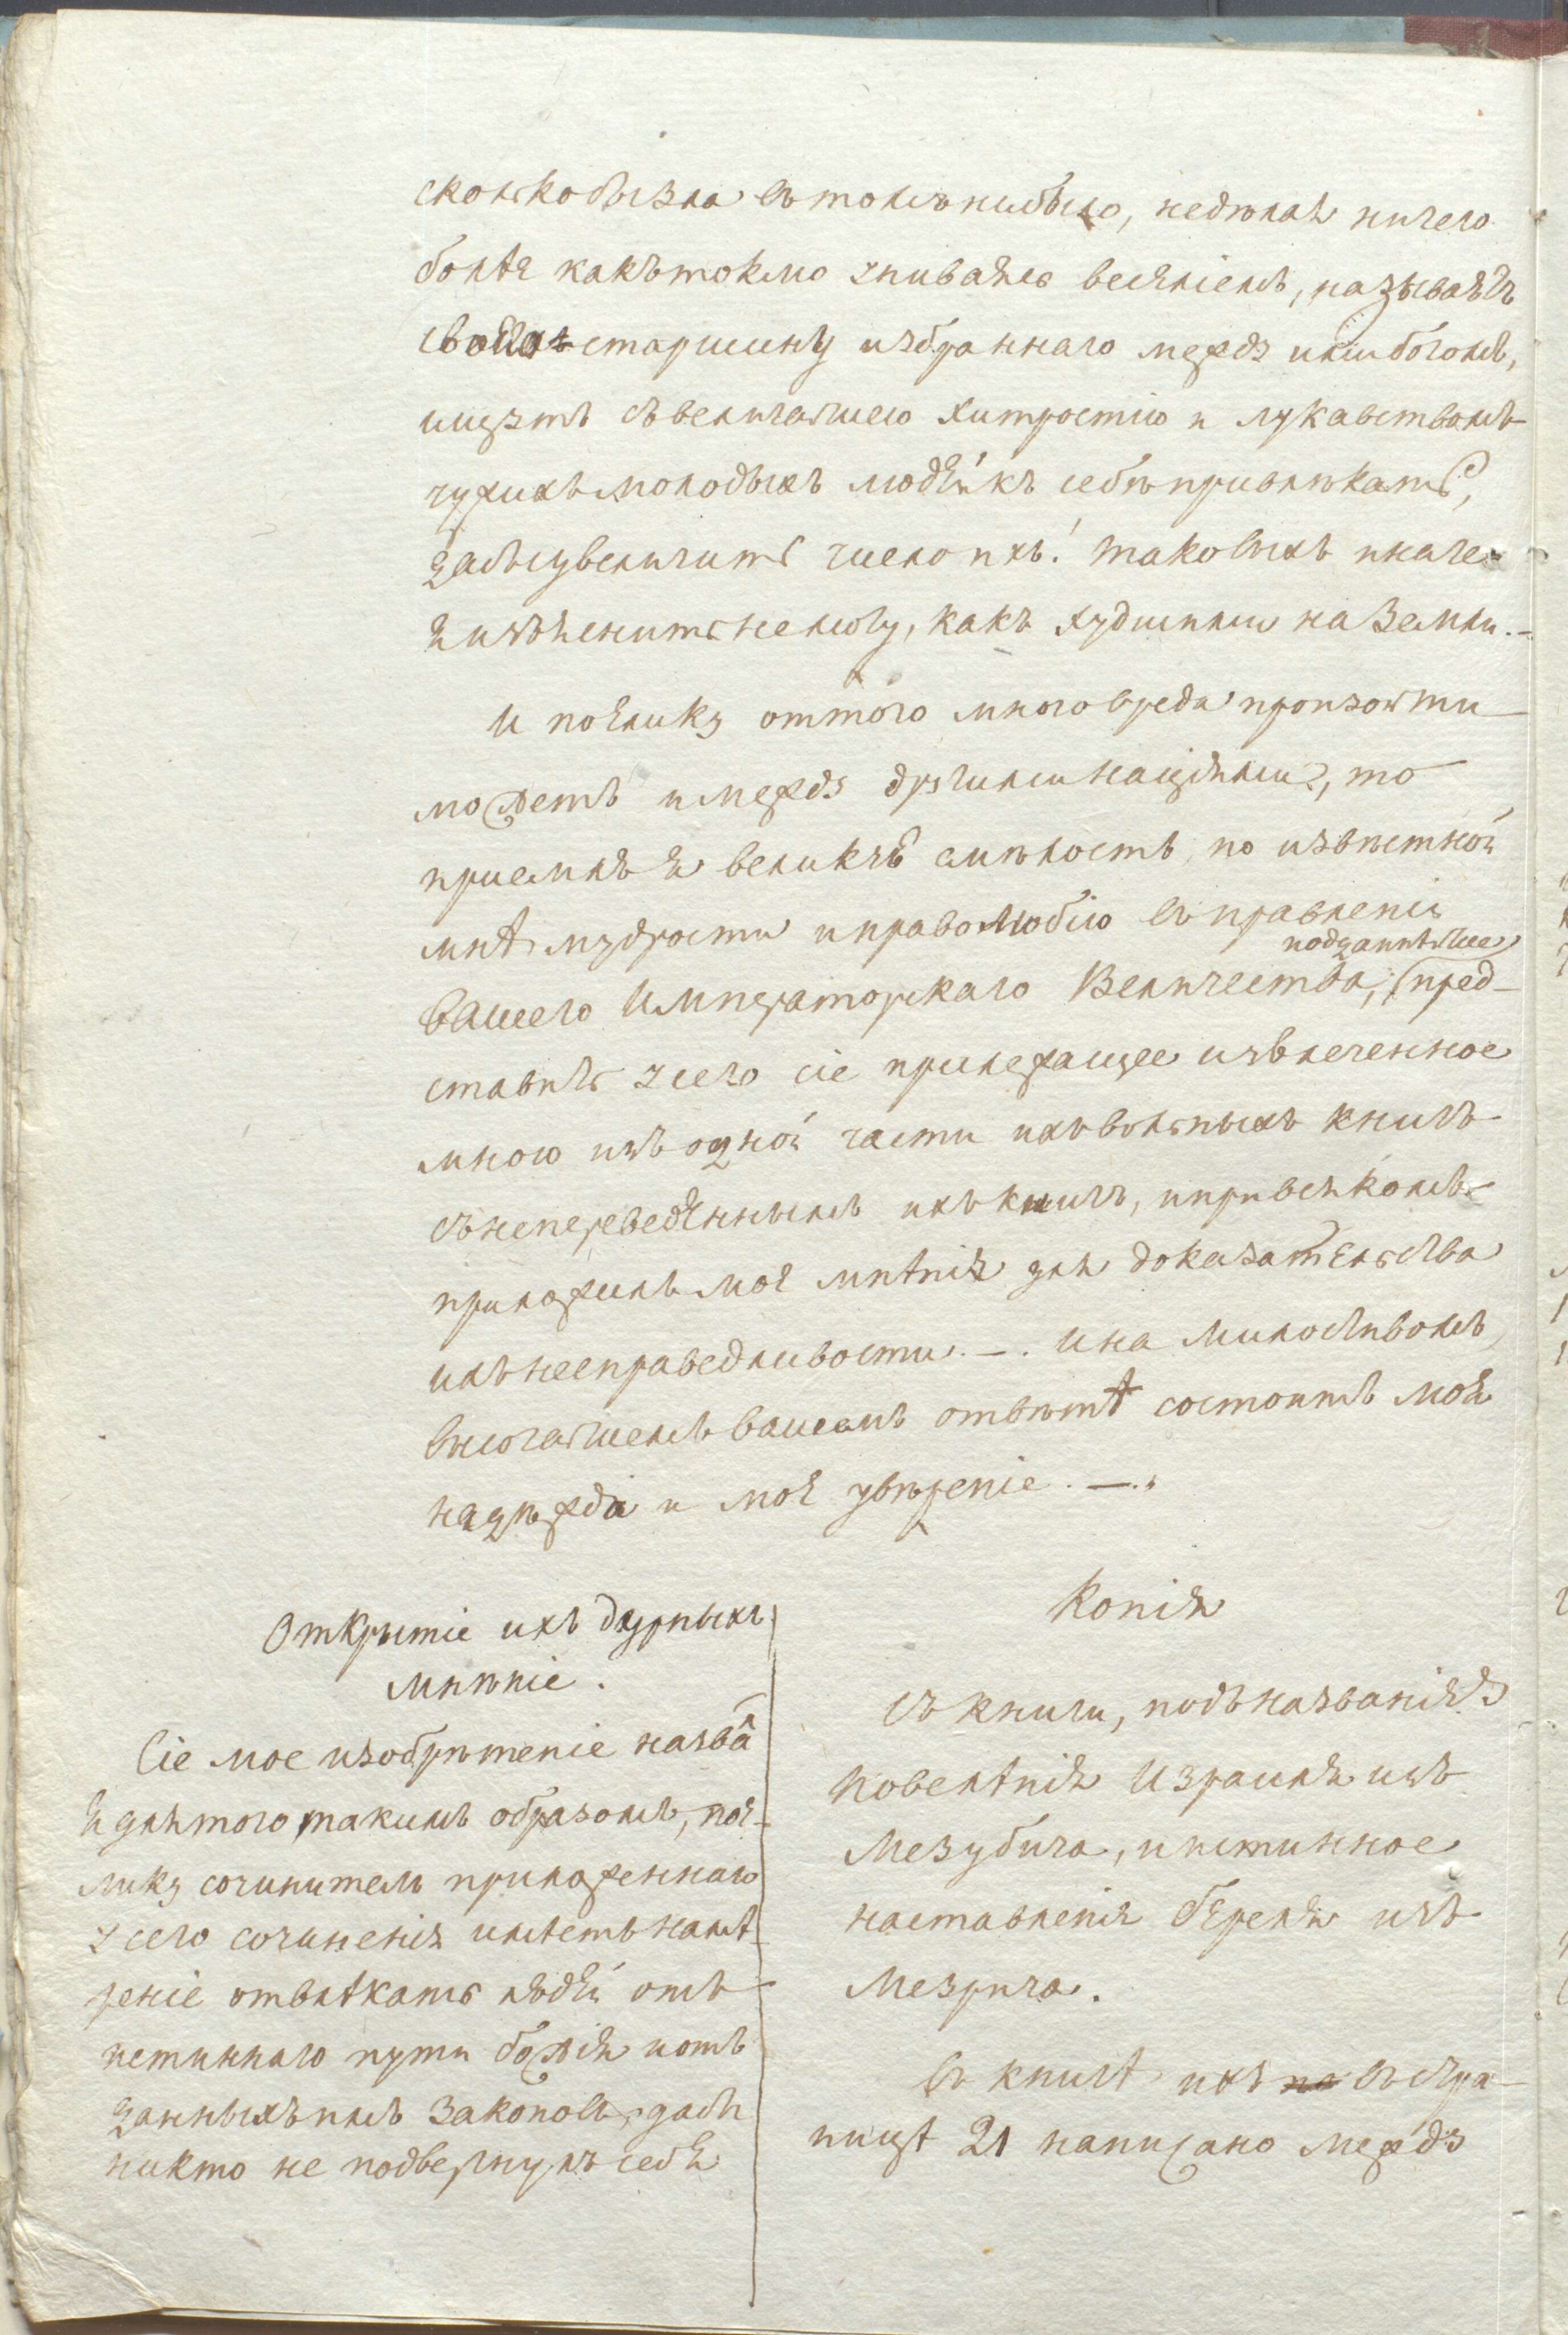 сколкобызла въ томъ нибыло, недѣлая ничего
болѣя какъ токмо упиваясь весѣліемъ, называятъ
своего старшину избраннаго между ими богомъ,
ищутъ съ величайшею хитростію и лукавствомъ
чужихъ молодыхъ людей къ себѣ привлѣкать,
дабы увеличить число ихъ! таковыхъ иначе
я изъяснить немогу, какъ худшими на Земли.—
И поелику оттого много вреда произойти
можетъ и между другими націями, то
приемля я великую смѣлость, по извѣстной
мнѣ мудрости и праволюбію въ правленіи
подданнѣйше
Вашего Императорскаго Величества, пред-
ставить у сего сіе прилежащее извлеченное
мною изъ одной части ихъ вольныхъ книгъ
съ непереведеннымъ ихъ книгъ, и при всякомъ
приложилъ мое мнѣнія для доказательства
ихъ несправедливости. —. И на милостивомъ
высочайшемъ вашемъ отвѣтѣ состоитъ моя
надѣжда и мое увѣреніе. —.
Открытіе ихъ дурныхъ
мнѣніе.
Сіе мое изобрѣтеніе назва
я для того такимъ образомъ, пое-
лику сочинитель приложеннаго
у сего сочиненія имѣетъ намѣ-
реніе отвлѣкать людей отъ
истиннаго пути божія и отъ
данныхъ имъ законовъ, дабы
никто не подвергнулъ себя
Копія
съ книги, подъ названіяя
повелѣнія Израиля изъ
Мезубича, и истинное
наставленія берекя изъ
Мезрича.
Въ книгѣ ихъ въ стра-
ницѣ 21 написано между